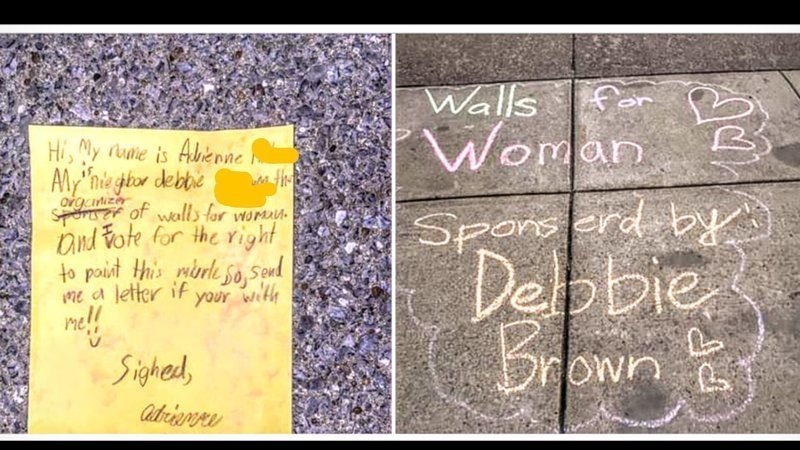 Hi, My name is Adrienne
My is niegbor debbie the
organizer
sponser of walls for woman.
and I vote for the right
to paint this murle so, send
me a letter if your with
me!!
Sighed,
adrienne
Walls for
Woman
Sponserd by:
Debbie
Brown